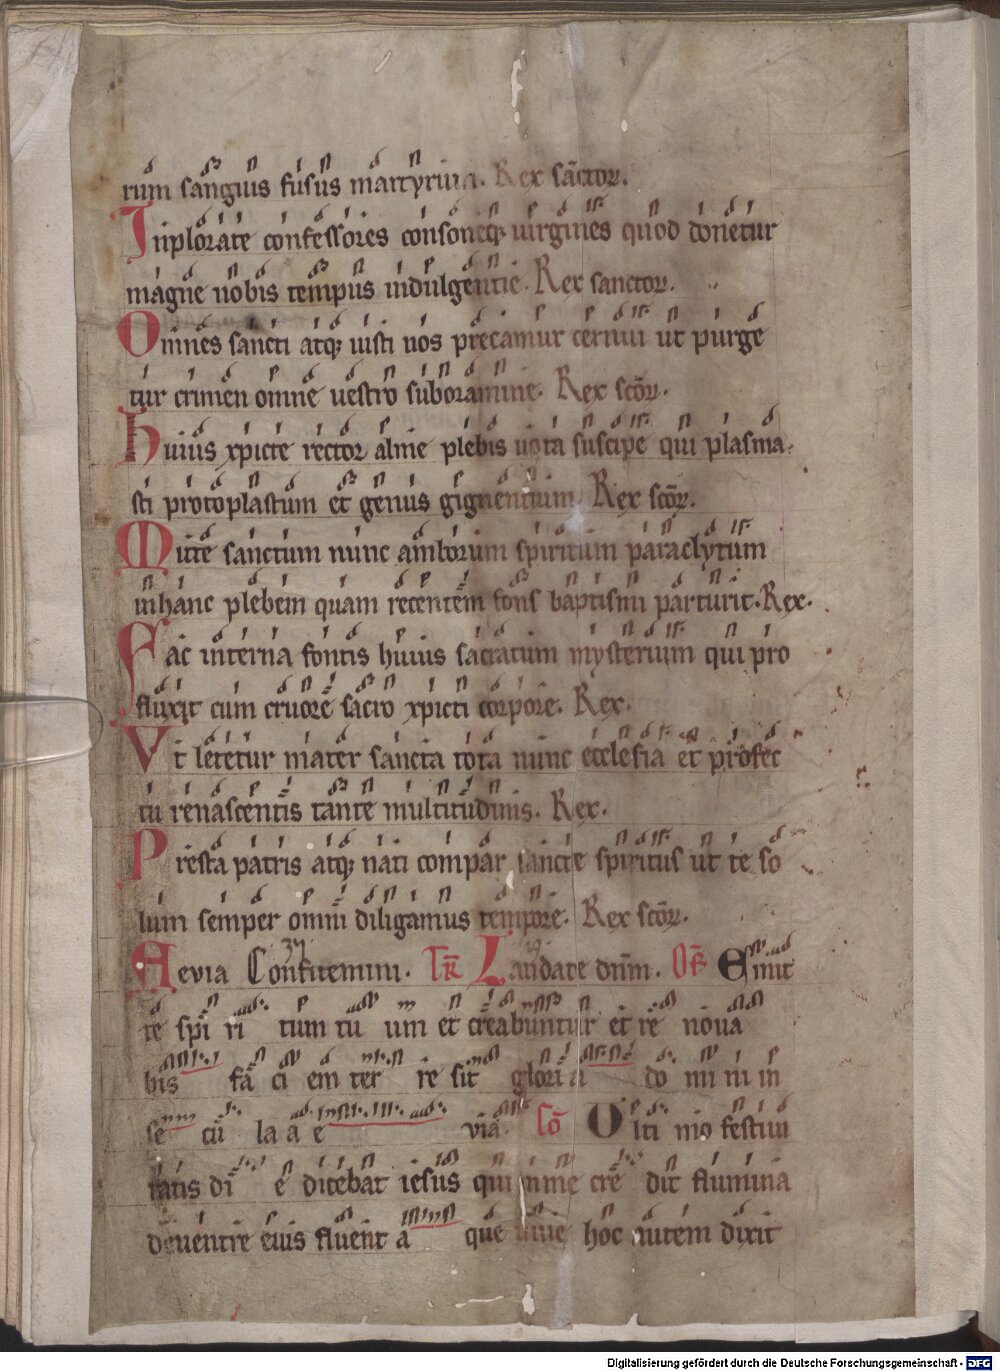 rum sanguis fusus martyrum. Rex sāctoꝝ.
Inplorate confessores consonetqꝫ uirgines quod donetur
magne nobis tempus indulgentie. Rex sanctoꝝ.
Omnes sancti atqꝫ iusti uos precamur cernui ut purge
tur crimen omne uestro sub oramine. Rex scōꝝ.
huius xpicte rector alme plebis uota suscipe qui plasma
sti protoplastum et genus gignentium. Rex scōꝝ.
Mitte sanctum nunc amborum spiritum paraclytum
in hanc plebem quam recentem fons baptismi parturit. Rex.
Fac interna fontis huius sacratum mysterium qui pro
fluxit cum cruore sacro xpicti corpore. Rex.
Vt letetur mater sancta tota nunc ecclesia et profec
tu renascentis tante multitudinis. Rex.
Presta patris atqꝫ nati compar sancte spiritus ut te so
lum semper omni diligamus tempore. Rex scōꝝ.
Aevia Confitemini. Tr̄ Laudate dn̄m. Of̄ Emit
te spi ri tum tu um et creabuntur et re noua
bis fa ci em ter re sit glori a do mi ni in
se cu la a e via. Cō Vlti mo festiui
tatis di e dicebat iesus qui in me cre dit flumina
de uentre eius fluent a que uiue hoc autem dixit
37
Digitalisierung gefördert durch die Deutsche Forschungsgemeinschaft - DFG